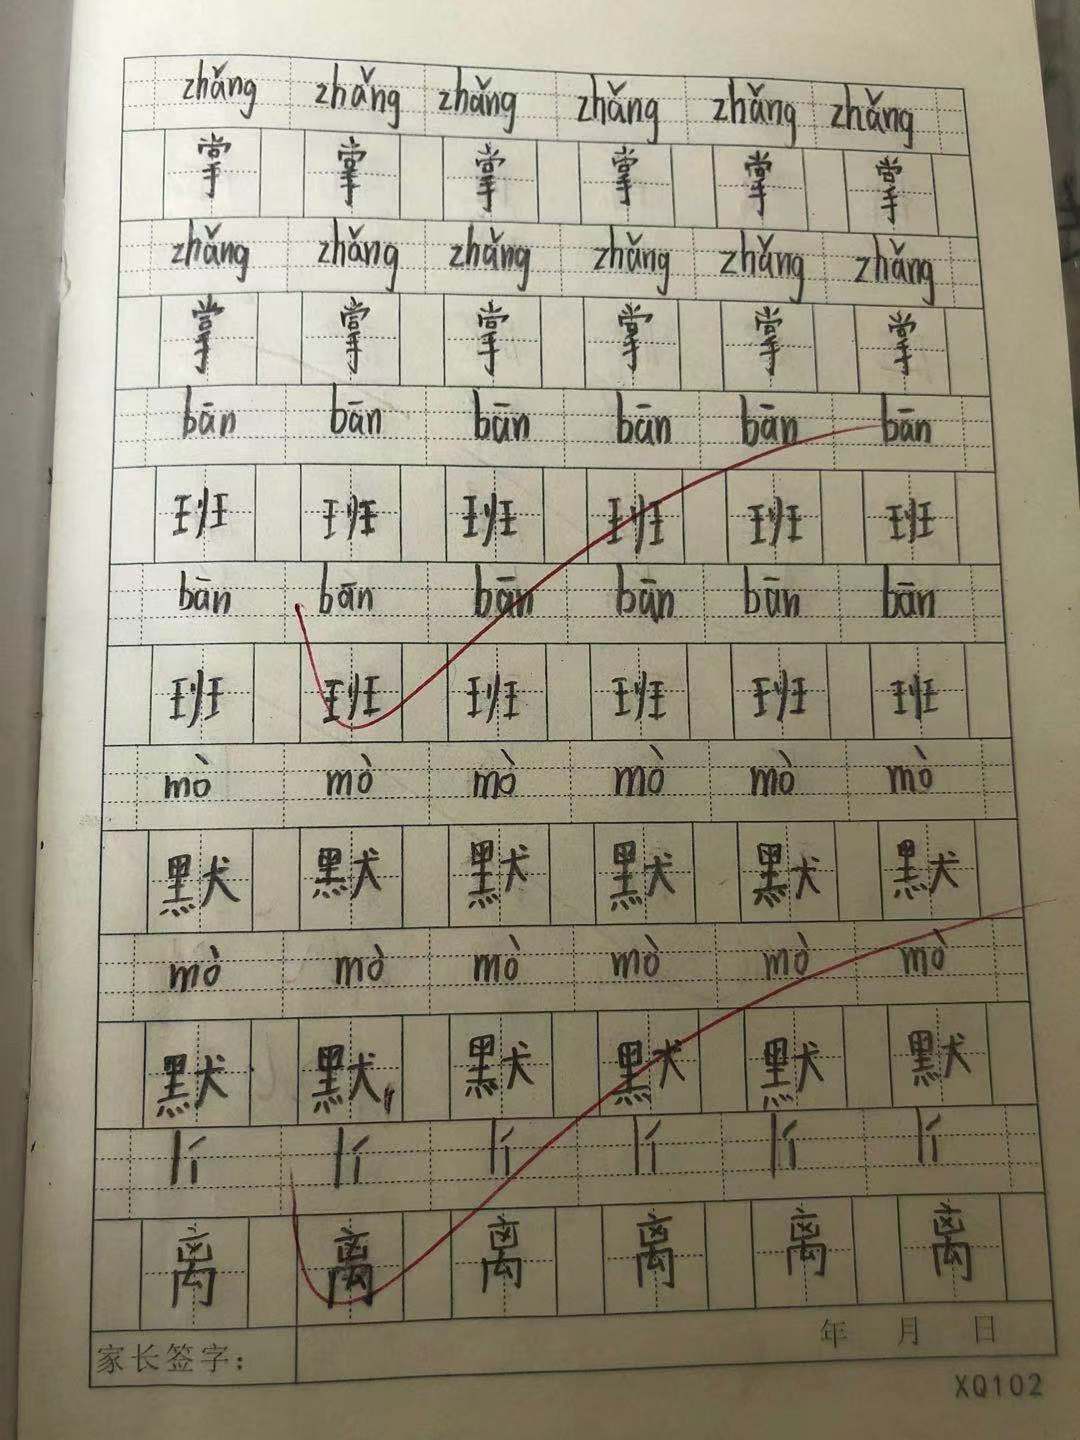 zhǎng zhǎng zhǎng zhǎng zhǎng zhǎng
掌 掌 掌 掌 掌 掌
zhǎng zhǎng zhǎng zhǎng zhǎng zhǎng
掌 掌 掌 掌 掌 掌
bān bān bān bān bān bān
班 班 班 班 班 班
bān bān bān bān bān bān
班 班 班 班 班 班
mò mò mò mò mò mò
默 默 默 默 默 默
mò mò mò mò mò mò
默 默 默 默 默 默
lí lí lí lí lí lí
离 离 离 离 离 离
家长签字： 年 月 日
XQ102